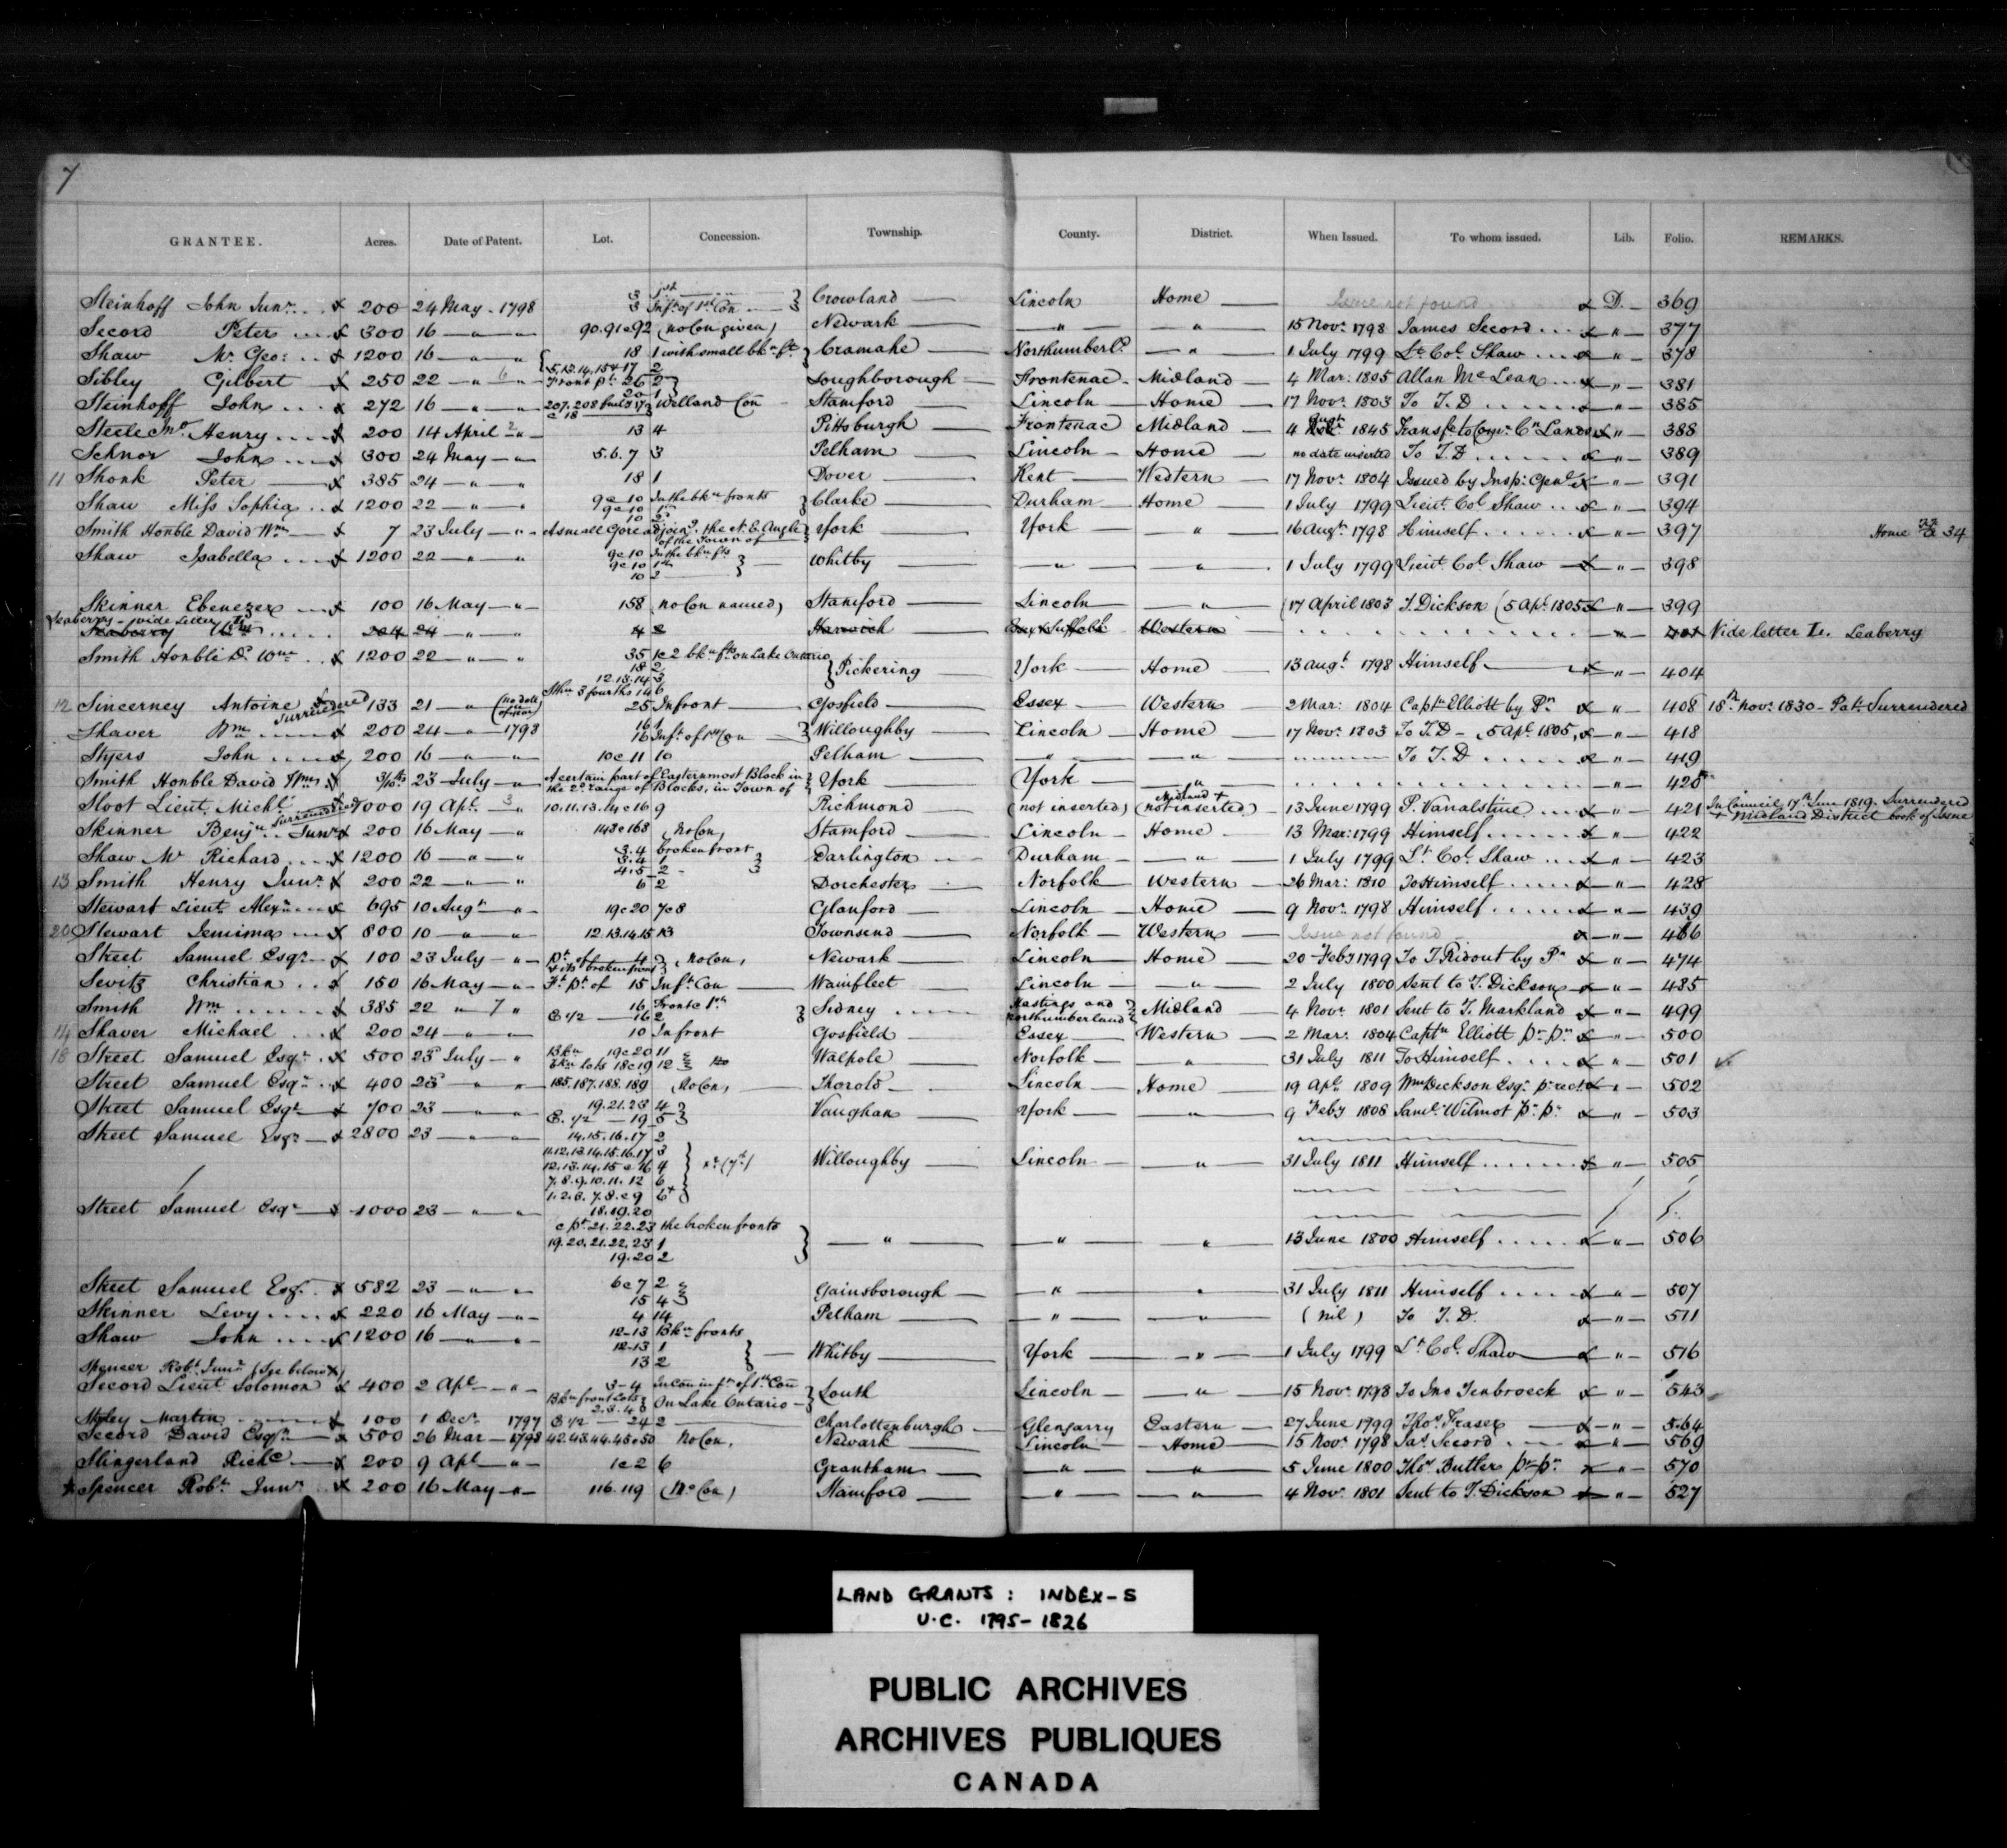 7
GRANTEE. Acres. Date of Patent. Lot. Concession. Township. County. District. When Issued. To whom issued. Lib. Folio. REMARKS.
Steinhoff John Junr. 200 24 May 1798 3 1st 3 In ft. of 1st Con } Crowland Lincoln Home Issue not found D. 369
Secord Peter 300 16 " " 90.91 & 92 (no Con given) Newark " " 15 Novr. 1798 James Secord " 377
Shaw Mr. Geo: 1200 16 " " 18 1 with small bkn ft. 5.13.14.15 & 17 2 } Cramahe Northumberld. " 1 July 1799 Lt. Col. Shaw " 378
Sibley Gilbert 250 22 " 6 " Front pt. 26 2 20 1 } Loughborough Frontenac Midland 4 Mar: 1805 Allan McLean " 381
Steinhoff John 272 16 " " 207.208 & 18 Welland Con Stamford Lincoln Home 17 Novr. 1803 To T.D " 385
Steele Henry 200 14 April 2 " 13 4 Pittsburgh Frontenac Midland 4 Augt. 1845 Transf. to Comr. Cn Lands " 388
Schnor John 300 24 May " 5.6.7 3 Pelham Lincoln Home no date inserted To T.D " 389
11 Shonk Peter 385 24 " " 18 1 Dover Kent Western 17 Novr. 1804 Issued by Insp: Genl. " 391
Shaw Miss Sophia 1200 22 " " 9 & 10 In the bkn fronts 9 & 10 1st 10 2d } Clarke Durham Home 1 July 1799 Lieut. Col. Shaw " 394
Smith Honble David Wm. 7 23 July " A small Gore adjoing. the N.E. Angle of the Town of } York York " 16 Augt. 1798 Himself " 397 Home 34
Shaw Isabella 1200 22 " " 9 & 10 In the bkn fts 9 & 10 1st 10 2 } Whitby " " 1 July 1799 Lieut. Col. Shaw " 398
Skinner Ebenezer 100 16 May " 158 (no Con named) Stamford Lincoln " (17 April 1803 T. Dickson (5 Apl. 1805 " 399
Leaberry - vide Letter L
Seaberry 204 24 " " 4 2 Harwich Suffolk Western " 401 Vide letter L. Leaberry
Smith Honble D. Wm. 1200 22 " " 35 1 & 2 bkn fts on Lake Ontario 18 2 12.13.14 3 Sthn 3 fourths 14 6 } Pickering York Home 13 Augt. 1798 Himself " 404
12 Sincerney Antoine Surrendered 133 21 " 25 In front Gosfield Essex Western 2 Mar: 1804 Captn Elliott by Pr. " 408 18th Novr. 1830 - Pat. Surrendered
Shaver Wm. 200 24 " 1798 16 1 16 In ft. of 1st Con } Willoughby Lincoln Home 17 Novr. 1803 To T.D - 5 Apl. 1805, " 418
Styers John 200 16 " " 10 & 11 10 Pelham " " To T.D " 419
Smith Honble David Wm. 23 July " A certain part of Easternmost Block in the 2d range of Blocks, in Town of } York York " " 420
Sloot Lieut. Michl. Surrendered 1000 19 Apl. 3 " 10.11.13.14 & 16 9 Richmond (not inserted) Midland + (not inserted) 13 June 1799 P. Vanalstine " 421 In Council 17th Jan 1819. Surrendered + Midland District book of Issue
Skinner Benjn. Junr. 200 16 May " 143 & 163 (No Con, Stamford Lincoln Home 13 Mar: 1799 Himself " 422
Shaw Mr. Richard 1200 16 " " 3.4 broken front 3.4 1 4.5 2 } Darlington Durham " 1 July 1799 Lt. Col. Shaw " 423
13 Smith Henry Junr. 200 22 " " 6 2 Dorchester Norfolk Western 26 Mar: 1810 To Himself " 428
Stewart Lieut. Alexr. 695 10 Augt. " 19 & 20 7 & 8 Glanford Lincoln Home 9 Novr. 1798 Himself " 439
20 Stewart Jemima 800 10 " " 12.13.14.15 13 Townsend Norfolk Western Issue not found " 466
Street Samuel Esqr. 100 23 July " Pt. of 4 & its broken front } (No Con, Newark Lincoln Home 20 Feby 1799 To T. Ridout by Pr. " 474
Sevitz Christian 150 16 May " Ft. pt. of 15 In ft. Con Wainfleet Lincoln " 2 July 1800 Sent to T. Dickson " 485
Smith Wm. 385 22 " 7 " 16 Front & 1st E. 1/2 16 2 } Sidney Hastings and Northumberland } Midland 4 Novr. 1801 Sent to T. Markland " 499
14 Shaver Michael 200 24 " " 10 In front Gosfield Essex Western 2 Mar: 1804 Captn Elliott pr. pr. " 500
18 Street Samuel Esqr. 500 23 July " Bkn 19 & 20 11 Bkn lots 18 & 19 12 } Walpole Norfolk " 31 July 1811 To Himself " 501
Street Samuel Esqr. 400 23 " " 185.187.188.189 (No Con, Thorold Lincoln Home 19 Apl. 1809 Wm. Dickson Esqr. pr. rect. " 502
Street Samuel Esqr. 700 23 " " 19.21.23 4 E. 1/2 19 5 } Vaughan York " 9 Feby 1808 Saml. Wilmot pr. pr. " 503
Street Samuel Esqr. 2800 23 " " 14.15.16.17 2
11.12.13.14.15.16.17 3
12.13.14.15 & 16 4 x (7th) Willoughby Lincoln " 31 July 1811 Himself " 505
7.8.9.10.11.12 6
1.2.3.7.8 & 9 6+
Street Samuel Esqr. 1000 23 " " 18.19.20
& pt. 21.22.23 the broken fronts
19.20.21.22.23 1 } " " " 13 June 1800 Himself " 506
19.20 2
Street Samuel Esqr. 532 23 " " 6 & 7 2 15 4 } Gainsborough " " 31 July 1811 Himself " 507
Skinner Levy 220 16 May " 4 14 Pelham " " (nil) To T.D. " 511
Shaw John 1200 16 " " 12-13 Bkn fronts 12-13 1 13 2 } Whitby York " 1 July 1799 Lt. Col. Shaw " 516
Spencer Robt. Junr. (See below x)
Secord Lieut. Solomon 400 2 Apl. " 3-4 In Con in ft. of 1st Con Bkn front Lots 2.3.4 On Lake Ontario } Louth Lincoln " 15 Novr. 1798 To Jno Tenbroeck " 543
Martin 100 1 Decr. 1797 E 1/2 24 2 Charlottenburgh Glengarry Eastern 27 June 1799 Thos. Fraser " 564
Secord David Esqr. 500 26 Mar 1798 42.43.44.45 & 50 No Con, Newark Lincoln Home 15 Novr. 1798 Jas. Secord " 569
Slingerland Richd 200 9 Apl " 1 & 2 6 Grantham " " 5 June 1800 Thos. Butler pr pr. " 570
x Spencer Robt. Junr. 200 16 May " 116.119 (No Con) Stamford " " 4 Novr. 1801 Sent to T. Dickson " 527
LAND GRANTS: INDEX-S
U.C. 1795-1826
PUBLIC ARCHIVES
ARCHIVES PUBLIQUES
CANADA